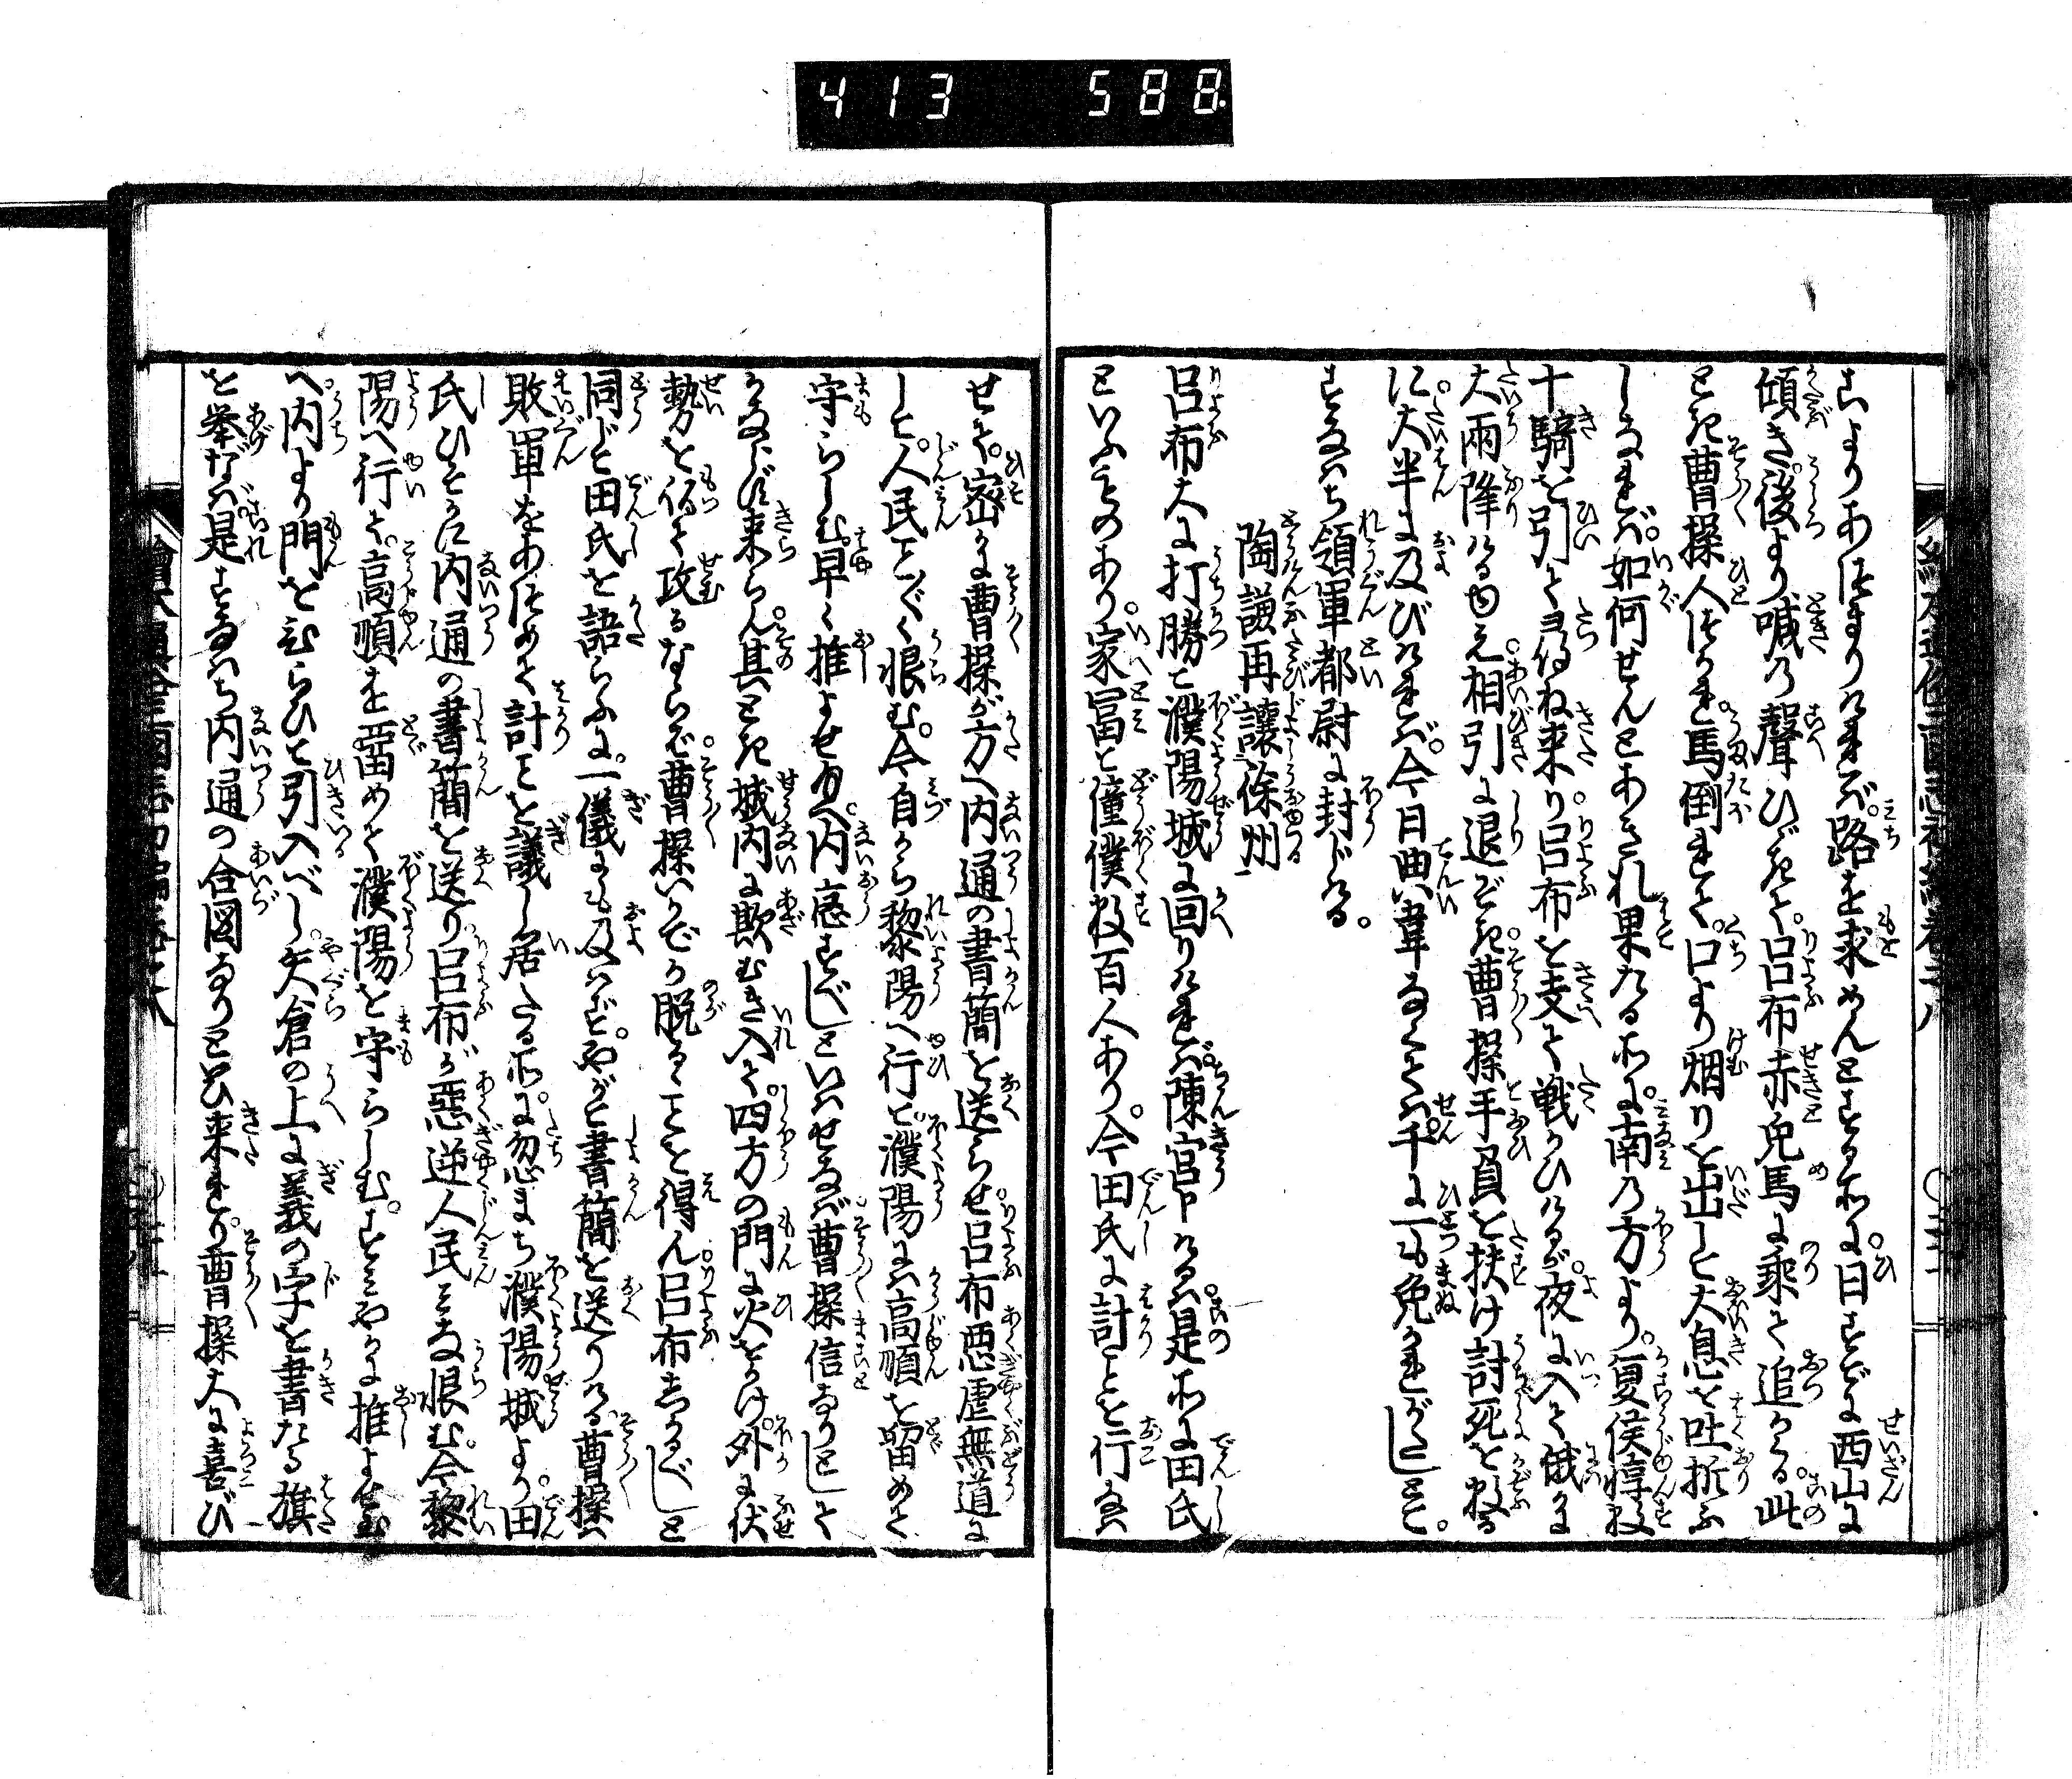 413 588
こよりあつまりければ。路を求めんとする所に。日すでに西山に
傾き。後より喊の聲ひゞきて。呂布赤兎馬に乘て追かくる。此
とき曹操人つかれ。馬倒れて。口より烟りを出し。大息を吐折ふ
しなれば。如何せんとあきれ果たる所に。南の方より。夏侯惇数
十騎を引て尋ね来り。呂布を支て戦かひけるが。夜に入て俄に
大雨降けるゆへ。相引に退ぞき。曹操手負を扶け討死を数る
に。大半に及びければ。今日典韋なくんば。千に一も免かれがたしとて。
すなはち領軍都尉に封じける。
陶謙再讓徐州
呂布大に打勝て濮陽城に回りければ。陳宮申けるは。是所に田氏
といふものあり。家冨て僮僕数百人あり。今田氏に計ごとを行は
せて。密に曹操が方へ内通の書簡を送らせ。呂布悪虐無道に
して。人民ことごとく恨む。今自から黎陽へ行て。濮陽には高順を留めて
守らしむ。早く推よせ給へ。内應すべしといはせなば。曹操信なりとして
かならず来らん。其とき城内に欺むき入て。四方の門に火をかけ。外に伏
勢を伏て攻るならば。曹操いかでか脱るゝことを得ん。呂布しかるべしと
同じて田氏を語らふに。一儀にも及ばず。やがて書簡を送りける。曹操は
敗軍をあつめて計ことを議し居たる所に。忽まち濮陽城より。田
氏ひそかに内通の書簡を送り。呂布が惡逆人民みな恨む。今黎
陽へ行て。高順を畱めて濮陽を守らしむ。すみやかに推よせ給
へ。内より門をひらひて引入べし。矢倉の上に義の字を書たる旗
を挙なば。是すなはち内通の合図なりといひ来れり。曹操大に喜び